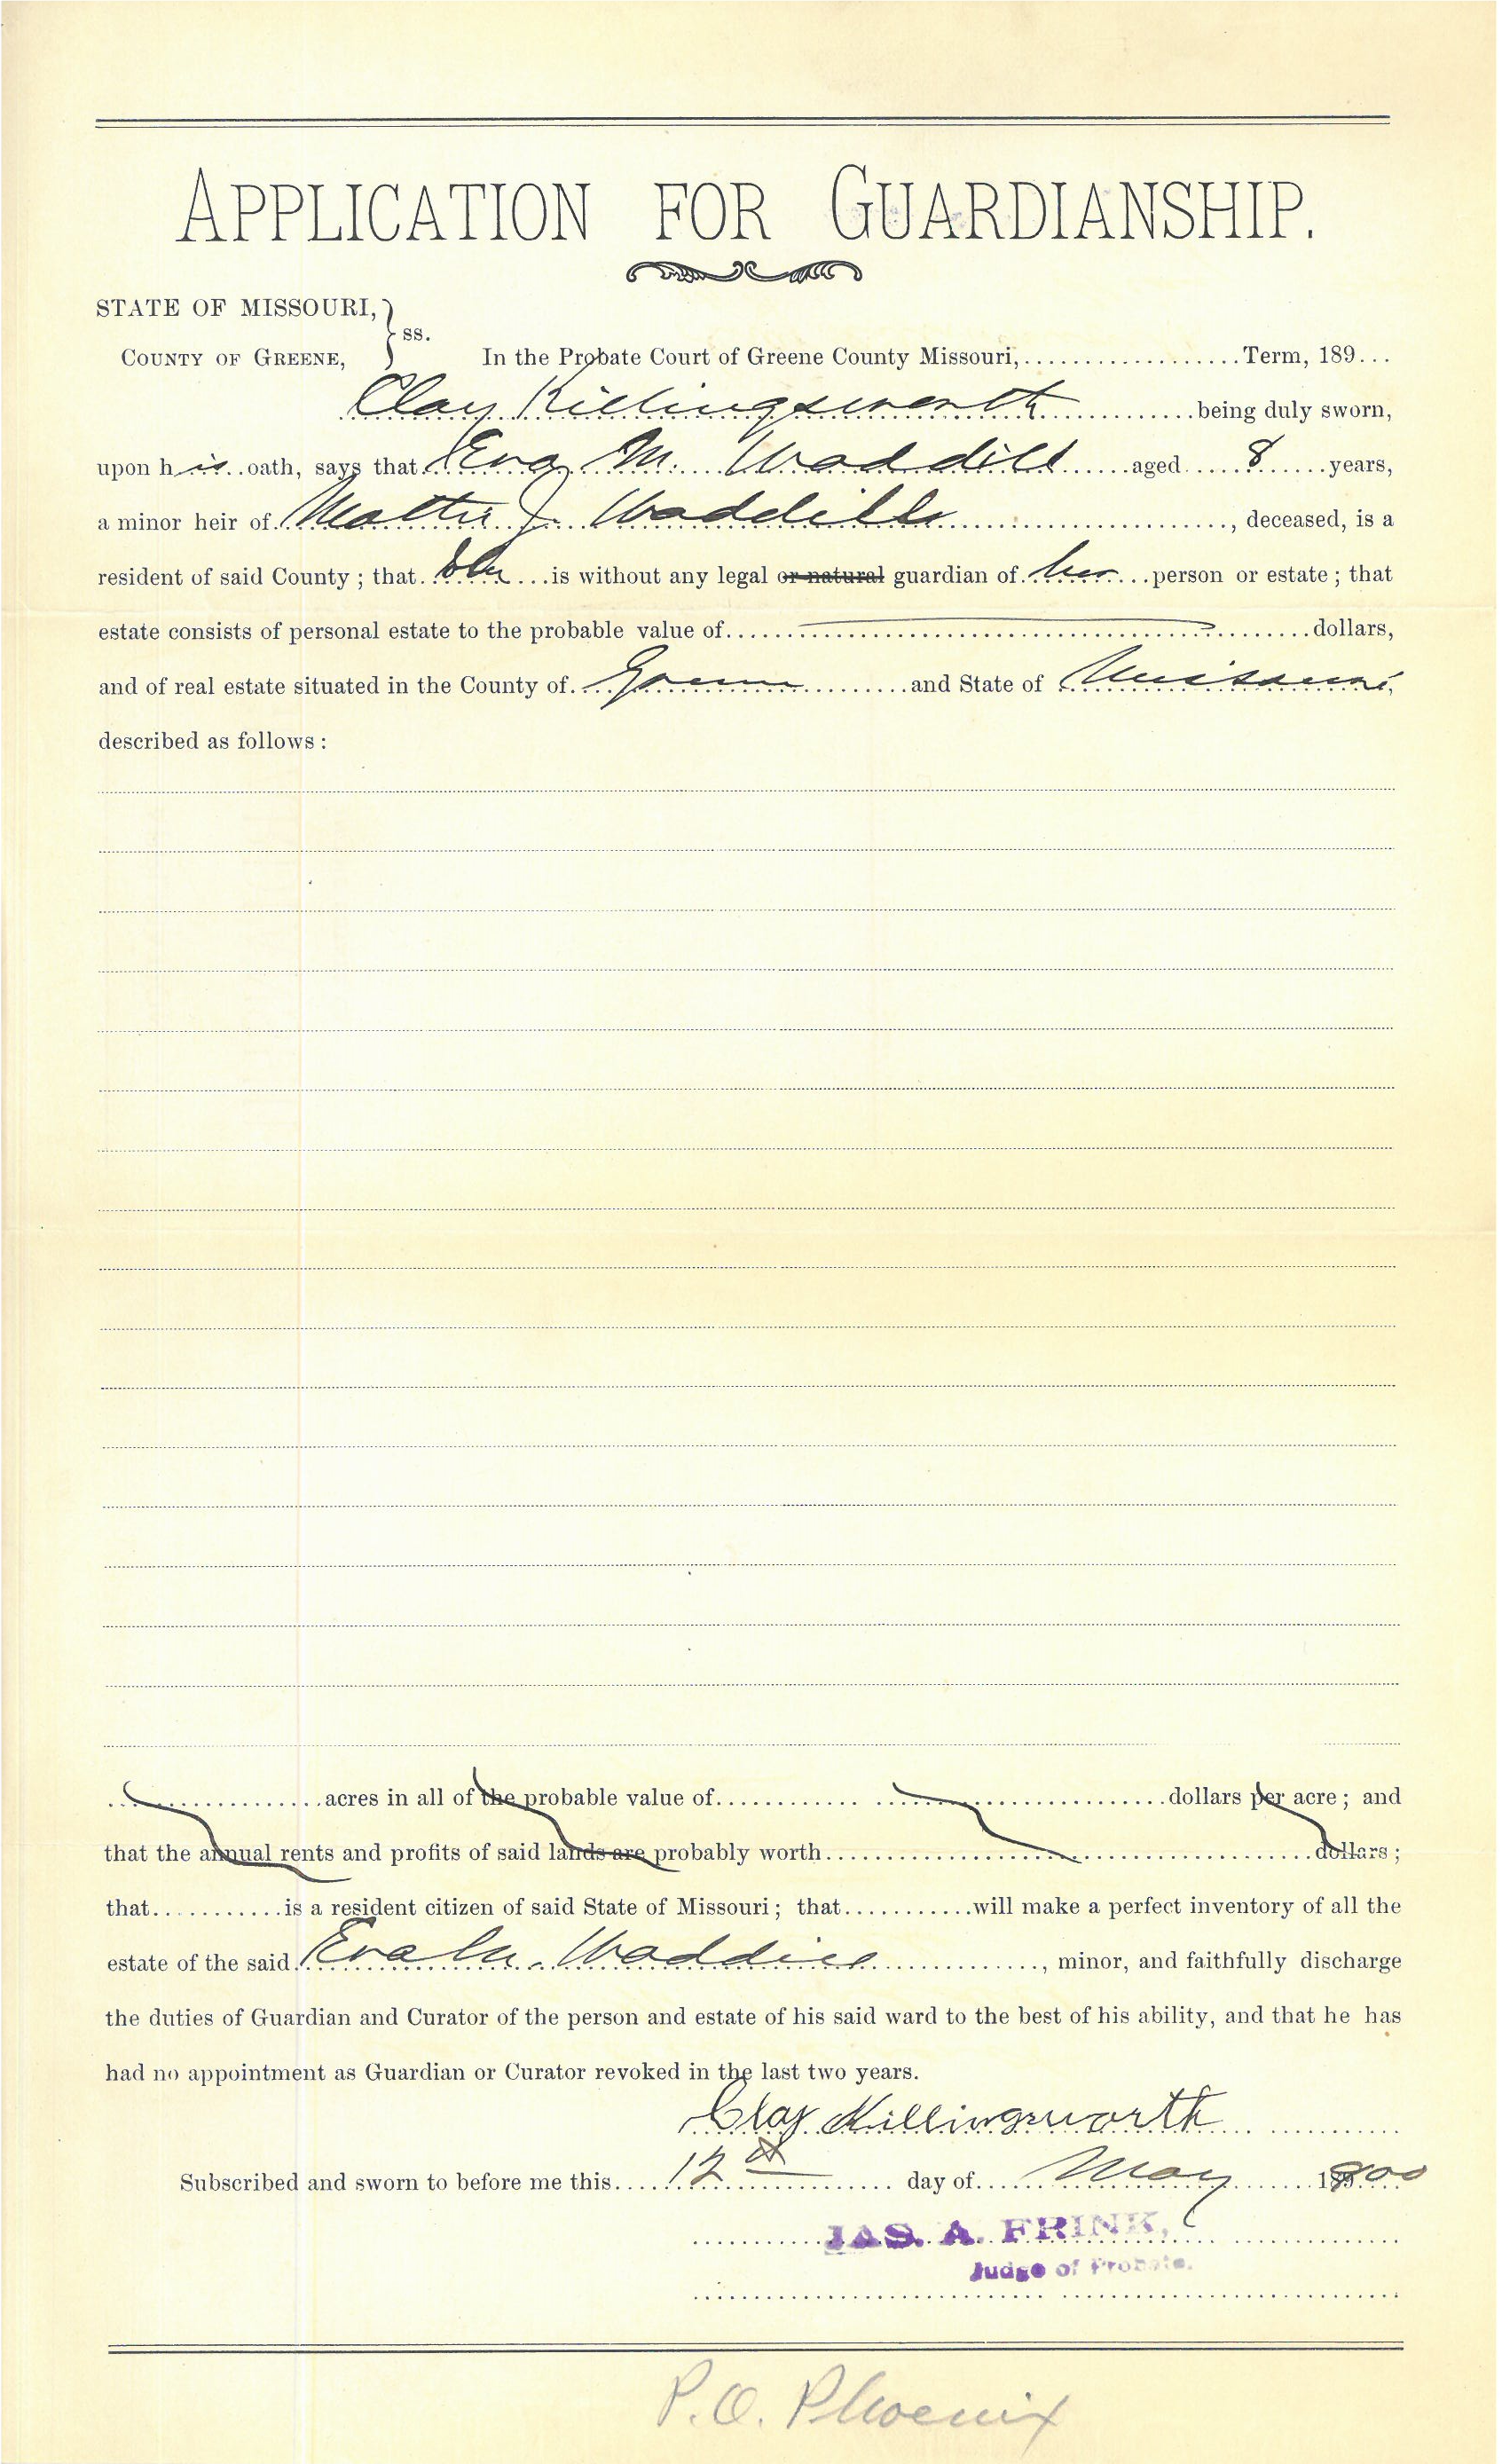 APPLICATION FOR GUARDIANSHIP.
STATE OF MISSOURI, } ss.
COUNTY OF GREENE, In the Probate Court of Greene County Missouri,..................Term, 189...
Clay Killingsworth being duly sworn,
upon his oath, says that Eva M. Waddill aged 8 years,
a minor heir of Mattie J. Waddill, deceased, is a
resident of said County; that she is without any legal or natural guardian of her person or estate; that
estate consists of personal estate to the probable value of.......dollars,
and of real estate situated in the County of Greene and State of Missouri,
described as follows:
acres in all of the probable value of............dollars per acre; and
that the annual rents and profits of said lands are probably worth............dollars;
that...........is a resident citizen of said State of Missouri; that...........will make a perfect inventory of all the
estate of the said Eva M. Waddill, minor, and faithfully discharge
the duties of Guardian and Curator of the person and estate of his said ward to the best of his ability, and that he has
had no appointment as Guardian or Curator revoked in the last two years.
Clay Killingsworth
Subscribed and sworn to before me this 12th day of May 1900
JAS. A. FRINK,
Judge of Probate.
P.O. Phoenix